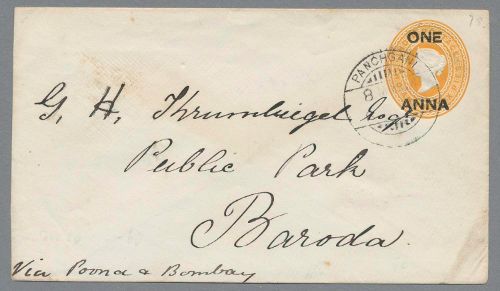 ONE
ANNA
PANCHGANI
G. H. Krumbiegel Esqr
Public Park
Baroda.
Via Poona & Bombay